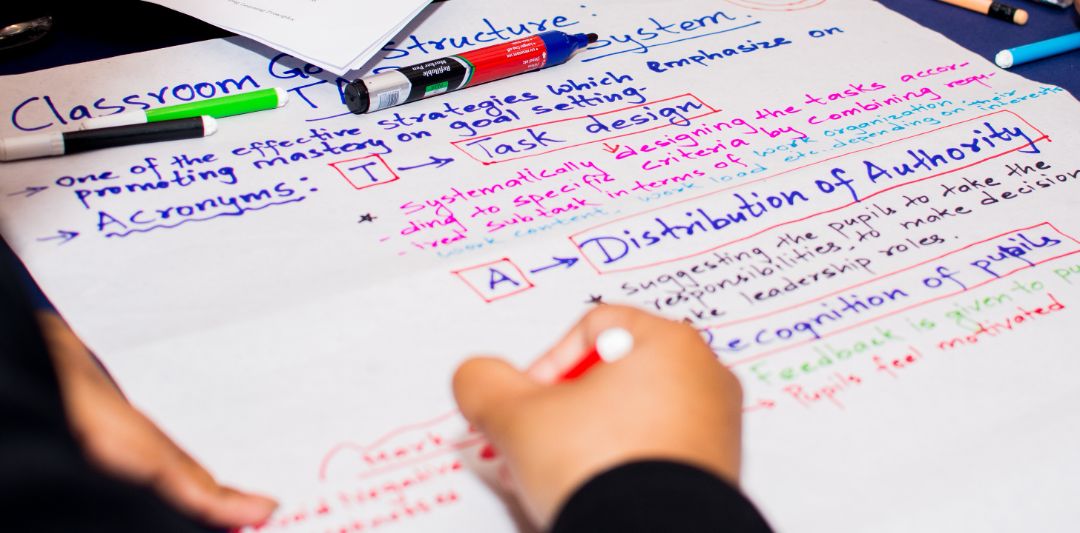 Classroom Go Structure:
T System.
→ One of the effective strategies which emphasize on
promoting mastery on goal setting.
→ Acronyms:
T → Task design
* Systematically designing the tasks accor-
- ding to specific criteria by combining requ-
- ired subtask in terms of work organization
work content, work load etc. depending on interests
A → Distribution of Authority
* suggesting the pupil to take the
responsibilities, to make decision
leadership roles.
Recognition of pupils
Feedback is given to pu
→ Pupils feel motivated
Refillable
Marker Pen